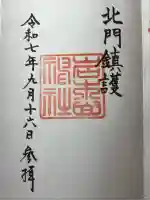 北門鎮護
令和七年九月十六日参拝